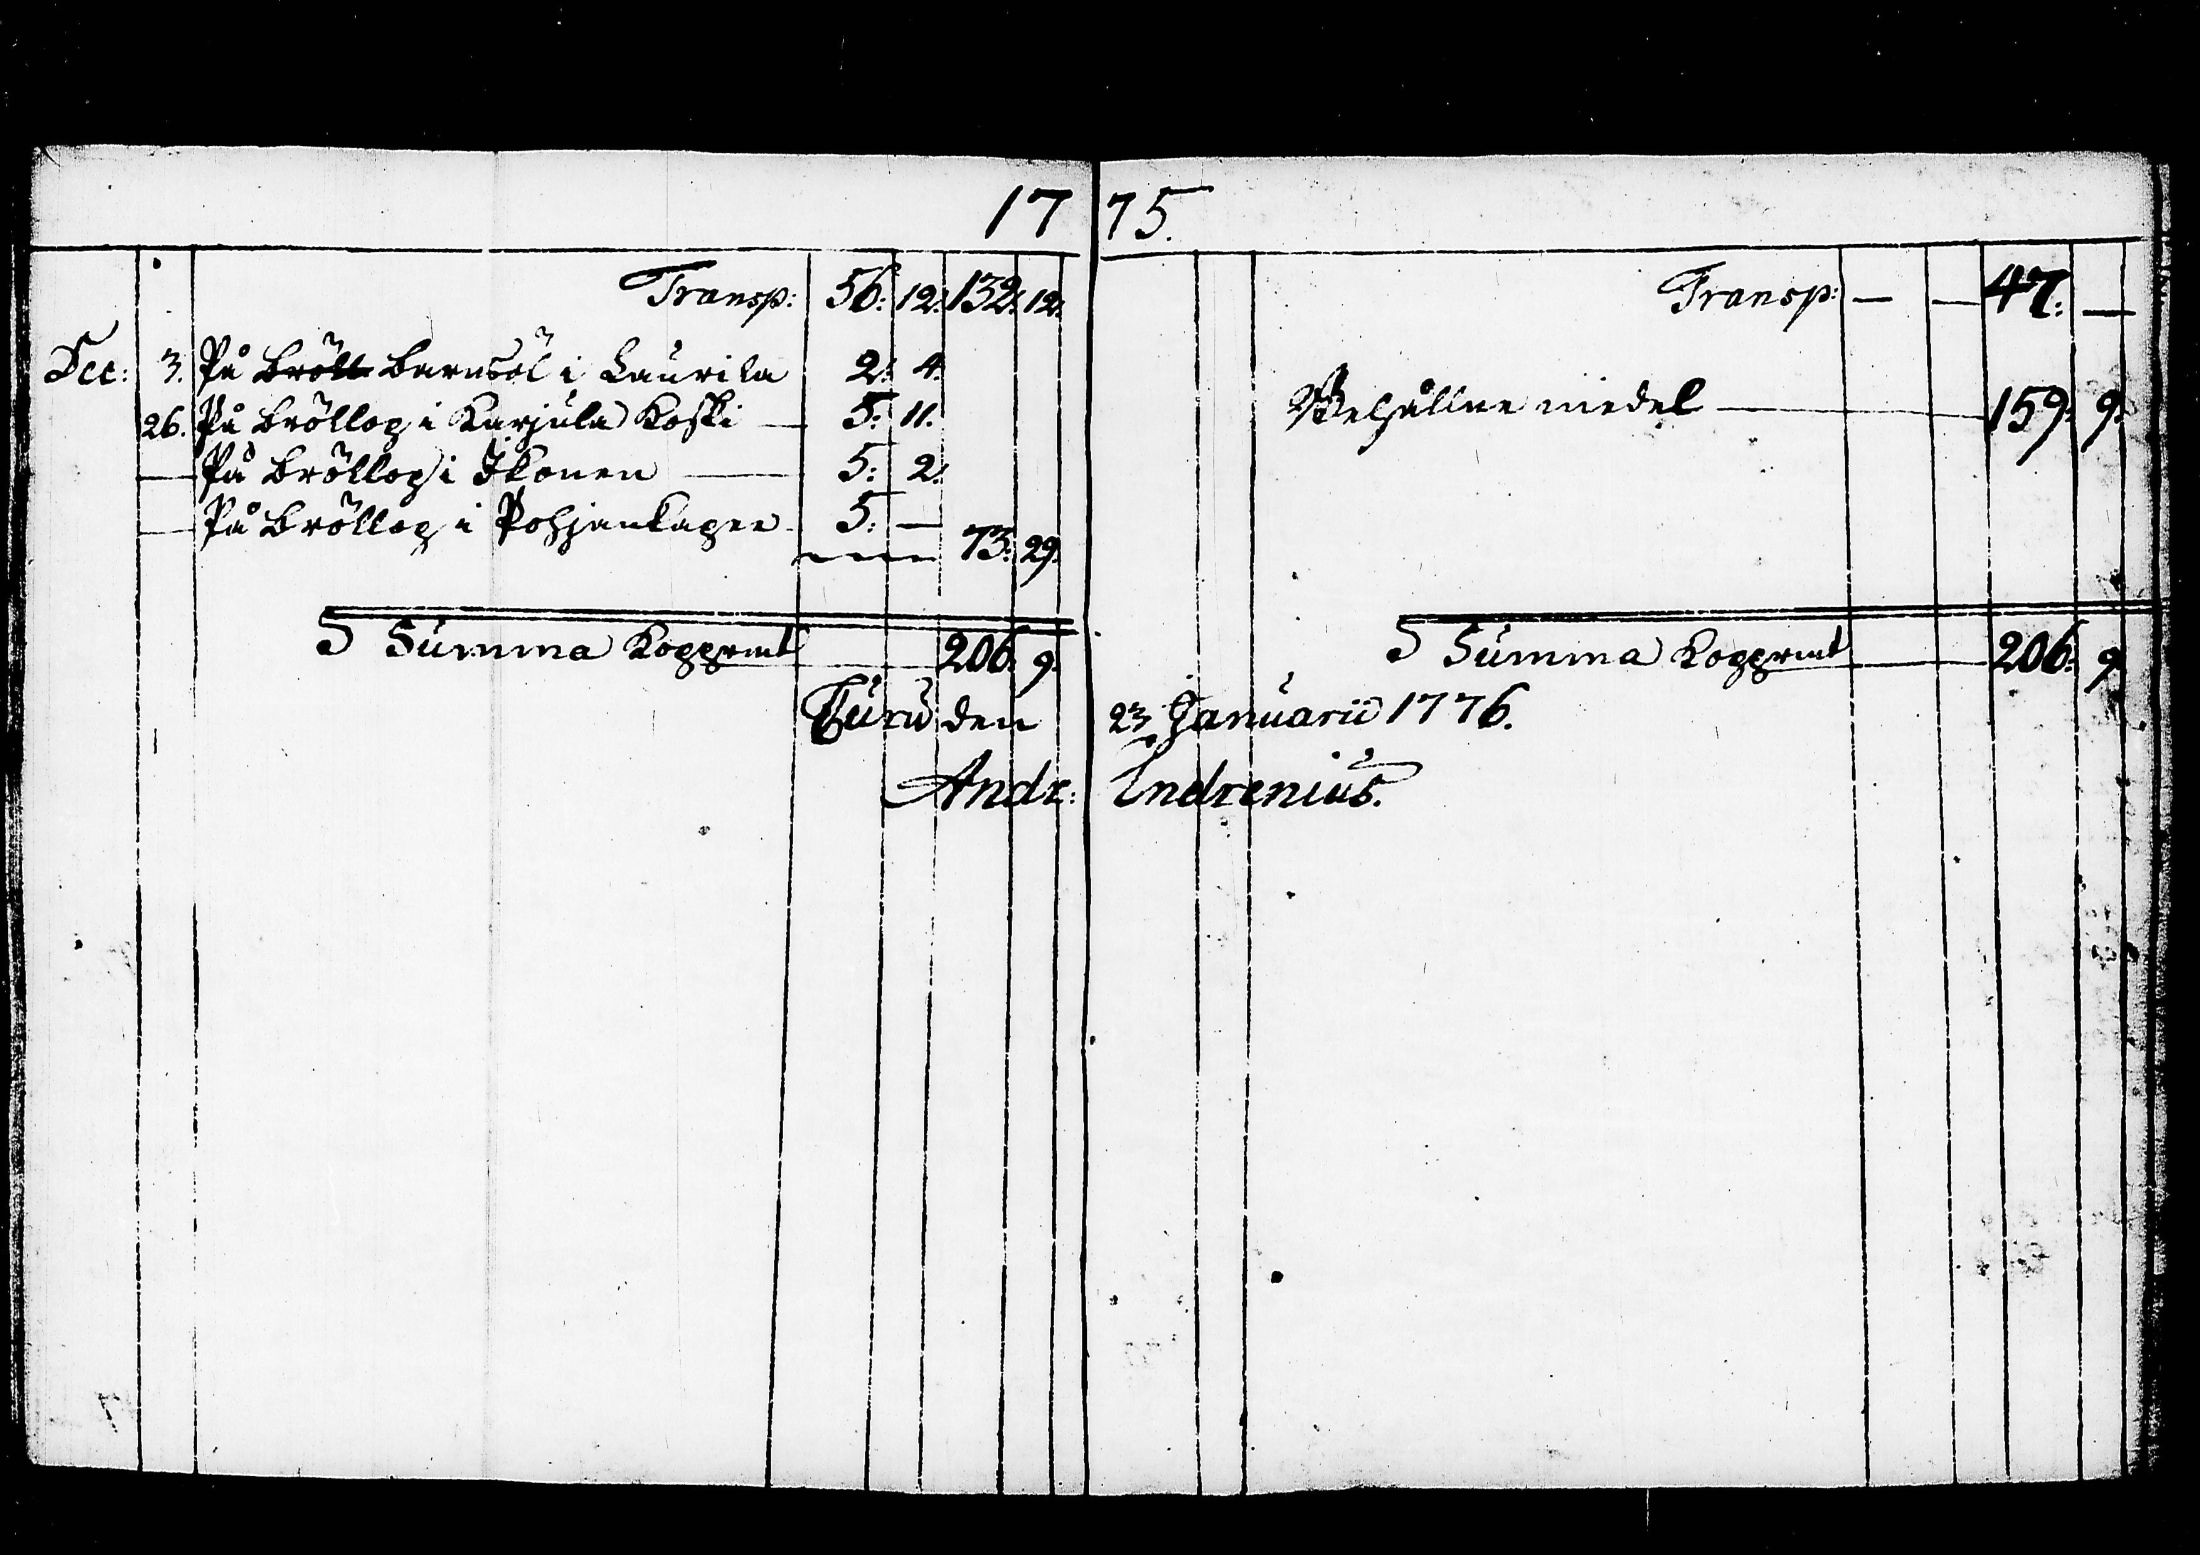 1775.
Transp: 56: 12. 132. 12.
Dec: 3. På bröll barnsöl i Laurila 2: 4.
26. På bröllop i Karjula Koski — 5: 11.
— På bröllop i Ikonen — 5: 2.
— På bröllop i Pohjanlapee 5: —
73: 29.
S Summa Kopprmt 206. 9.
Transp: — — 47: —
Behållne medel — 159: 9.
S Summa Kopprmt — 206: 9.
Türü den 23 Januarii 1776.
Andr: Indrenius.